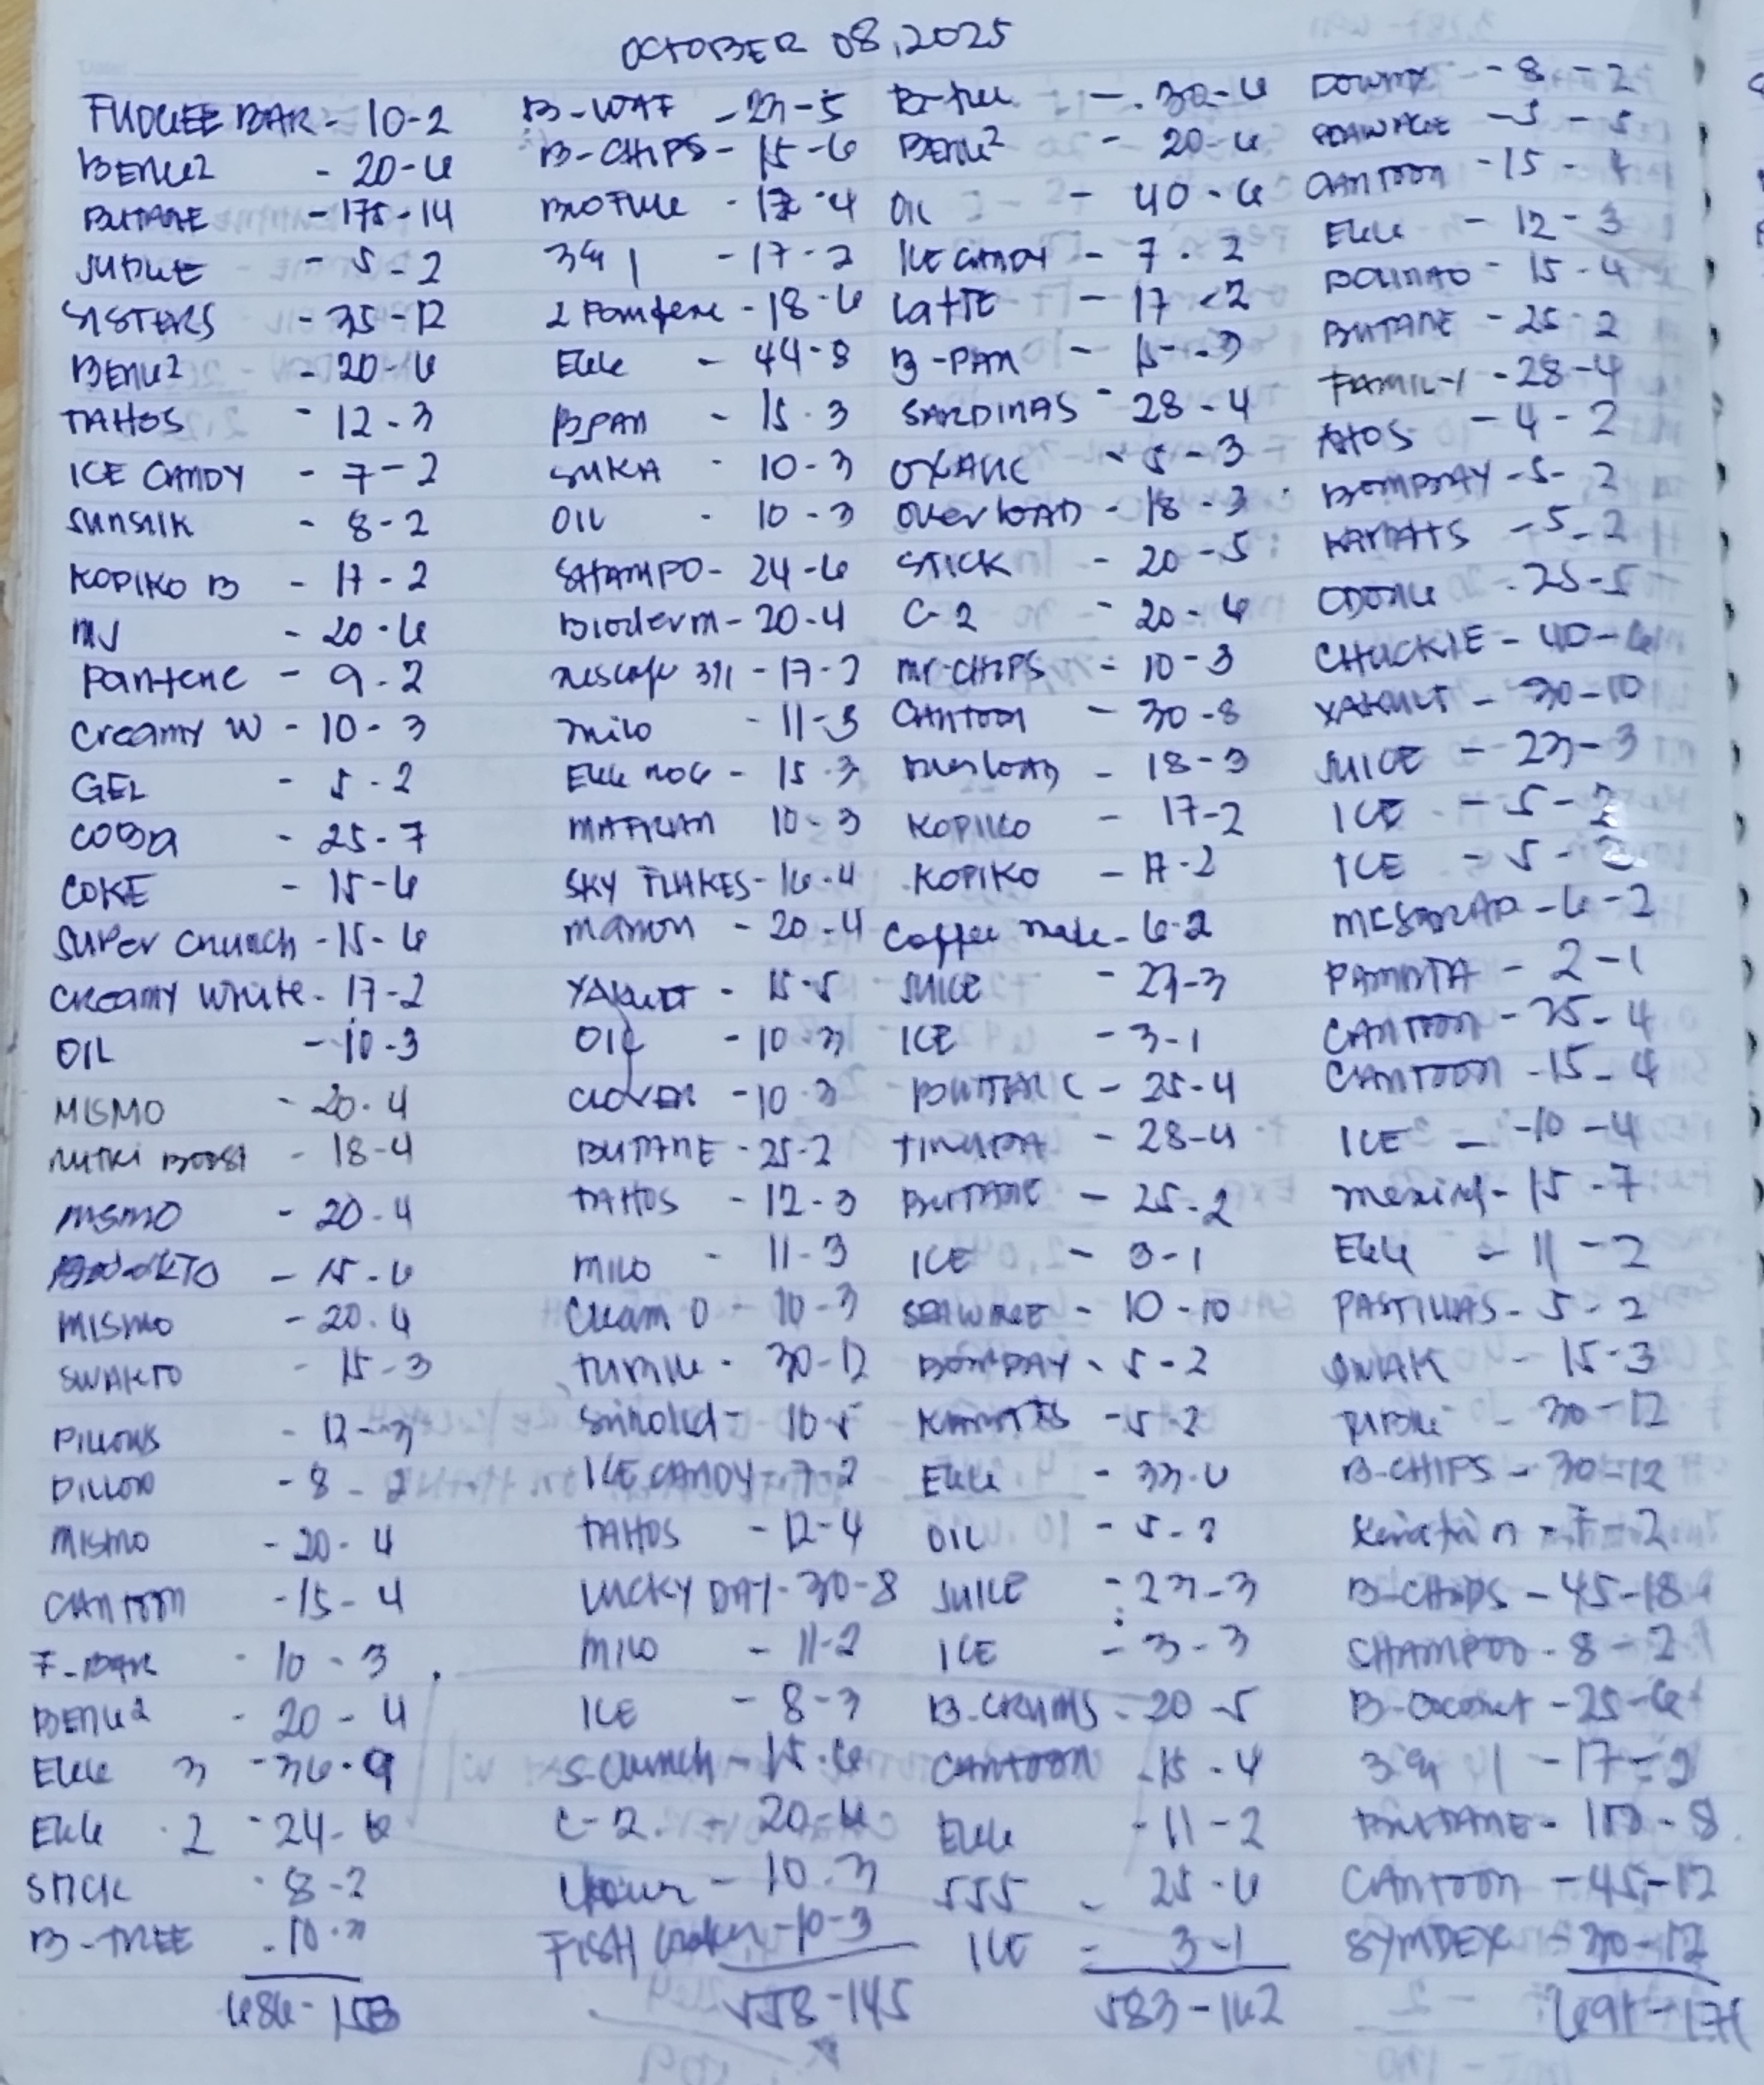 OCTOBER 08, 2025
FUDGEE BAR - 10-2
BENG2 - 20-6
BUTANE - 175-14
JUDGE - 5-2
SISTERS - 35-12
BENG2 - 20-6
TAHOS - 12-3
ICE CANDY - 7-2
SUNSILK - 8-2
KOPIKO B - 17-2
MJ - 20-6
Pantene - 9-2
Creamy W - 10-3
GEL - 5-2
COBRA - 25-7
COKE - 15-6
SUPER CRUNCH - 15-6
CREAMY WHITE - 17-2
OIL - 10-3
MISMO - 20-4
NUTRI BOOST - 18-4
MISMO - 20-4
- 15-6
MISMO - 20-4
SWAKTO - 15-3
PILLOWS - 12-3
PILLOW - 8-2
MISMO - 20-4
CANTOON - 15-4
F-BAR - 10-3
BENG2 - 20-4
EGG 3 - 36-9
EGG 2 - 24-6
STICK - 8-2
B-TREE - 10-3
686-153
B-WAF - 23-5
B-CHIPS - 15-6
BIOFUGE - 12-4
3 in 1 - 17-2
2 Pantene - 18-6
EGG - 44-8
BPAN - 15-3
SUKA - 10-3
OIL - 10-3
SHAMPO - 24-6
Bioderm - 20-4
Nescafe 3n1 - 17-2
Milo - 11-3
EGG NOG - 15-3
MAFRAN 10-3
SKY FLAKES - 16-4
MAMON - 20-4
YAKULT - 15-5
OIL - 10-3
CLOVER - 10-3
BUTANE - 25-2
TAHOS - 12-3
MILO - 11-3
Cream O - 10-3
- 30-12
Sinolid - 10-5
ICE CANDY - 7-2
TAHOS - 12-4
LUCKY DAY - 30-8
MILO - 11-2
ICE - 8-3
S-Crunch - 15-6
C-2 - 20-6
- 10-3
FISH Craker - 10-3
558-145
- 30-6
BENG2 - 20-6
OIL - 40-6
ICE CANDY - 7-2
LATTE - 17-2
B-PAN - 15-3
SARDINAS - 28-4
OXALIC - 5-3
OVERLOAD - 18-3
STICK - 20-5
C-2 - 20-6
MR-CHIPS - 10-3
CANTOON - 30-8
OVERLOAD - 18-3
KOPIKO - 17-2
KOPIKO - 17-2
Coffee mate - 6-2
JUICE - 23-3
ICE - 3-1
BUTANE - 25-4
TINAPA - 28-4
BUTANE - 25-2
ICE - 3-1
SEAWAGE - 10-10
BOMBAY - 5-2
KAMATIS - 5-2
EGG - 33-6
OIL - 5-2
JUICE - 23-3
ICE - 3-3
B-CRUMS - 20-5
CANTOON - 15-4
EGG - 11-2
555 - 25-6
ICE - 3-1
583-142
DOWNY - 8-2
SEAWAGE - 5-5
CANTOON - 15-4
EGG - 12-3
DOLINAO - 15-4
BUTANE - 25-2
FAMILY - 28-4
AHOS - 4-2
BOMBAY - 5-2
KAMATIS - 5-2
ODONG - 25-5
CHUCKIE - 40-6
YAKULT - 30-10
JUICE - 23-3
ICE - 5-2
ICE - 5-2
MGSARAP - 6-2
PAMINTA - 2-1
CANTOON - 35-4
CANTOON - 15-4
ICE - 10-4
- 15-7
EGG - 11-2
PASTILLAS - 5-2
SWAK - 15-3
- 30-12
B-CHIPS - 30-12
Keratin - 7-2
B-CHIPS - 45-18
SHAMPOO - 8-2
B-Coconut - 25-6
3 in 1 - 17-2
BUTANE - 100-8
CANTOON - 45-12
SYMDEX - 30-12
691-171